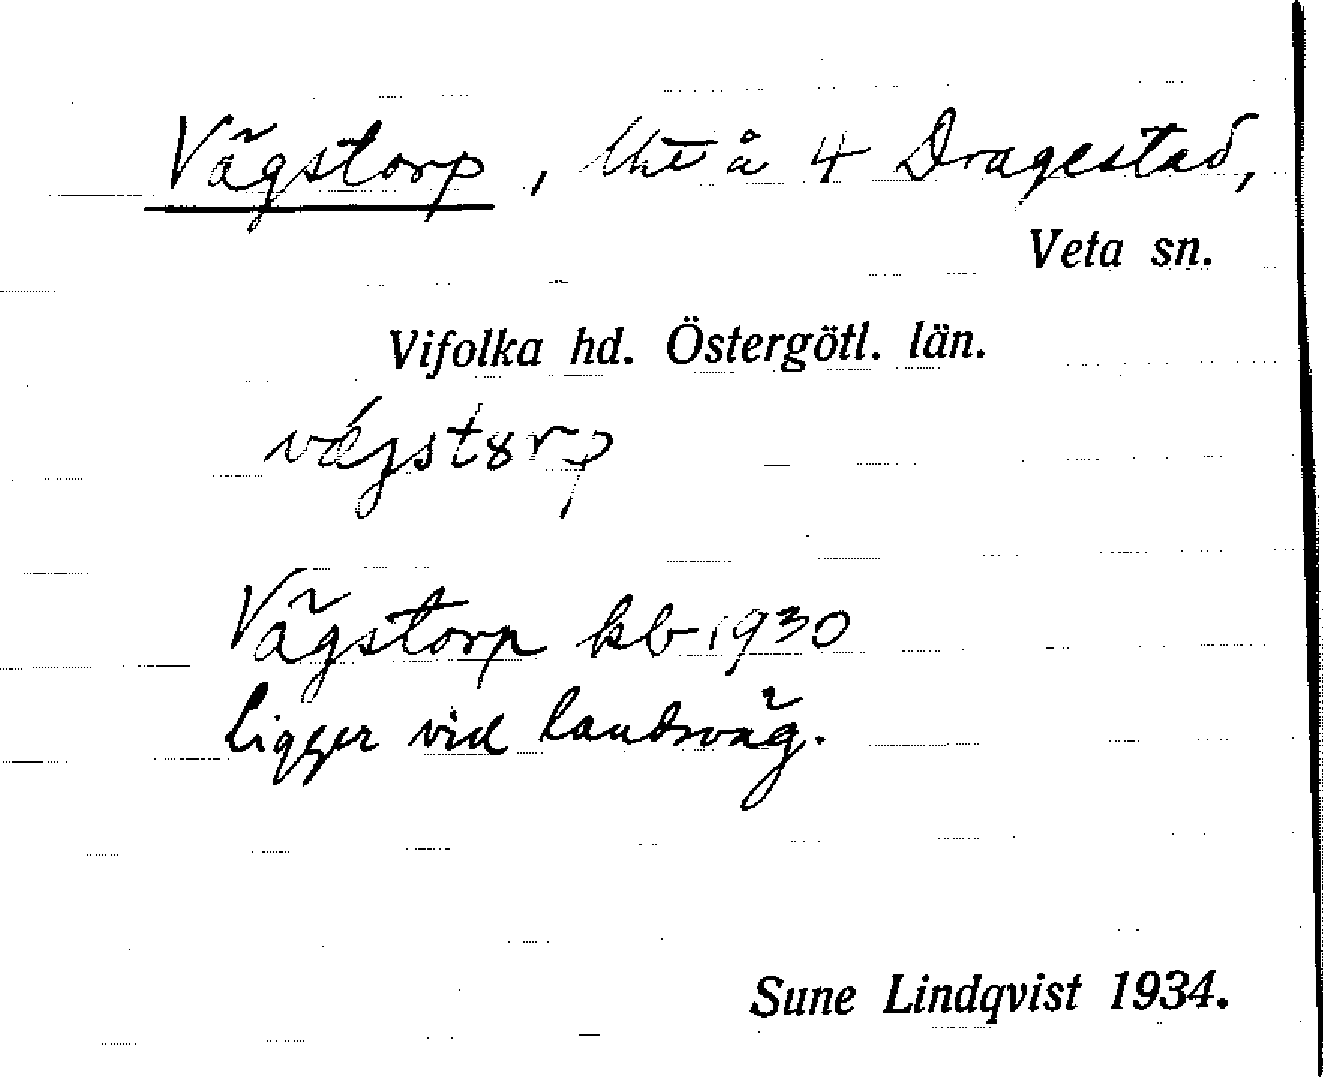 Vägstorp, lht å 4 Dragestad,
Veta sn.
Vifolka hd. Östergötl. län.
vǽgstȣrp
Vägstorp kb 1930
Ligger vid landsväg.
Sune Lindqvist 1934.